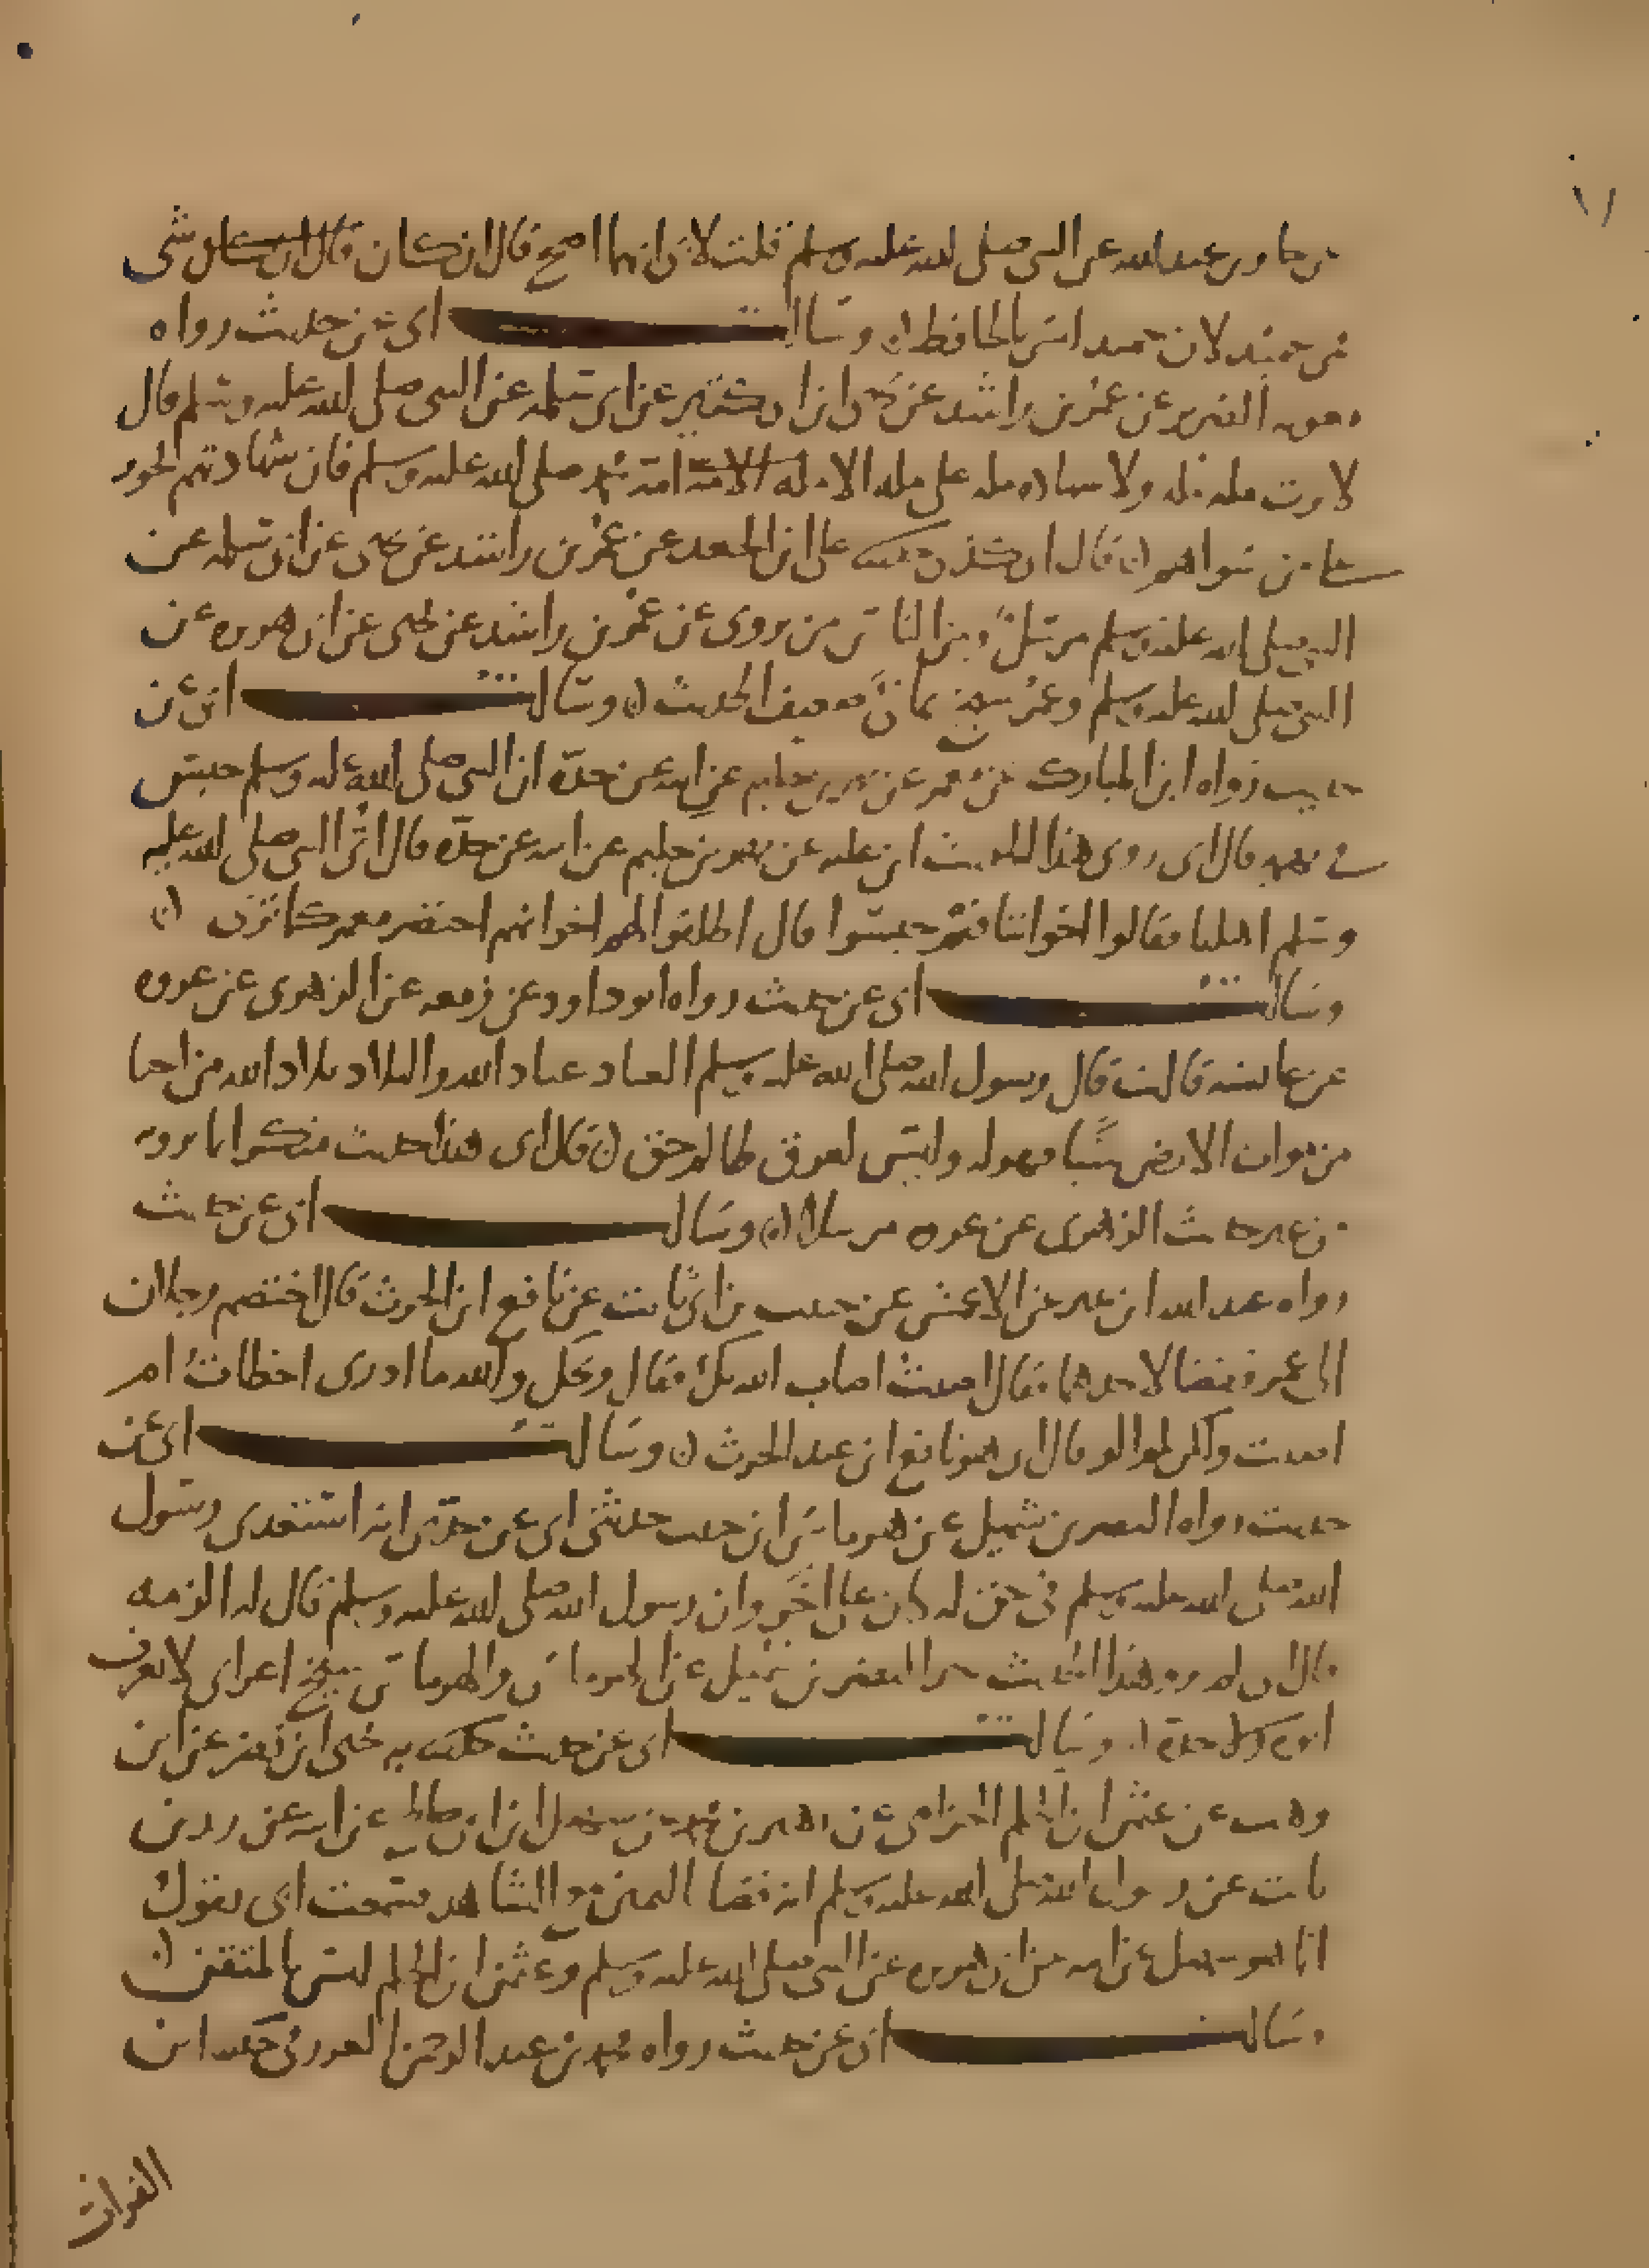 عن جابر بن عبد الله عن النبي صلى الله عليه وسلم قلت لابي ايهما اصح قال ان كان قال ابن كان شي
فمن حميد لان حميد ليس بالحافظ وسالت ابي عن حديث رواه
معويه الضرير عن عمر بن راشد عن يحيى ابن ابي كثير عن ابي سلمه عن النبي صلى الله عليه وسلم قال
لا ترث مله مله ولا شهاده مله على مله الا مله الامة امة محمد صلى الله عليه وسلم فان شهادتهم تجوز
على من سواهم قال ابي كذى حدثنا علي ابن الجعد عن عمر بن راشد عن يحيى عن ابي سلمه عن
النبي صلى الله عليه وسلم مرسل ومن الناس من يروى عن عمر بن راشد عن يحيى عن ابي هريره عن
النبي صلى الله عليه وسلم وعمر شيخ يمان ضعيف الحديث وسالت ابي عن
حديث رواه ابن المبارك عن معمر عن بهز بن حكيم عن ابيه عن جده ان النبي صلى الله عليه وسلم حبس
في تهمه قال ابي روى هذا الحديث ابن عليه عن بهز بن حكيم عن ابيه عن جده قال اتى النبي صلى الله عليه
وسلم اهلنا فقالوا اخواننا فيم حبسوا قال اطلقوا لهم اخوانهم اختصر معمر كما ترى
وسالت ابي عن حديث رواه ابو داود عن زمعه عن الزهرى عن عروه
عن عايشه قالت قال رسول الله صلى الله عليه وسلم العباد عباد الله والبلاد بلاد الله من احيا
من موات الارض شيا فهو له وليس لعرق ظالم حق قال ابي هذا حديث منكر انما يرويه
من غير حديث الزهرى عن عروه مرسلا وسالت ابي عن حديث
رواه عبد الله ابن عن الاعمش عن حبيب بن ابي ثابت عن نافع ابن الحرث قال اختصم رجلان
الى عمر فقضا لاحدهما فقال اصبت اصاب الله بك فقال ويحك والله ما ادرى اخطات ام
اصبت ولكن لم الو قال ابي هو نافع ابن عبد الحرث وسالت ابي عن
حديث رواه النضر بن شميل عن هرماس ابن حبيب حدثني ابي عن جدي انه استعدى رسول
الله صلى الله عليه وسلم في حق له كان على اخر وان رسول الله صلى الله عليه وسلم قال له الزمه
قال ابي لم يرو هذا الحديث غير النضر بن شميل عن الهرماس والهرماس شيخ اعرابي لا يعرف
ابوه ولا جده وسالت ابي عن حديث حدثنا به يحيى ابن نصر عن ابن
وهب عن عثمن ابن الحكم الحزامى عن زهير بن محمد عن سهيل ابن ابي صالح عن ابيه عن زيد بن
ثابت عن رسول الله صلى الله عليه وسلم انه قضا اليمين مع الشاهد فسمعت ابي يقول
انما هو سهيل عن ابيه عن ابي هريره عن النبي صلى الله عليه وسلم وعثمن ابن الحكم ليس بالمتقن
وسالت ابي عن حديث رواه محمد بن عبد الرحمن العرزمي حدثنا ابن
الفرات